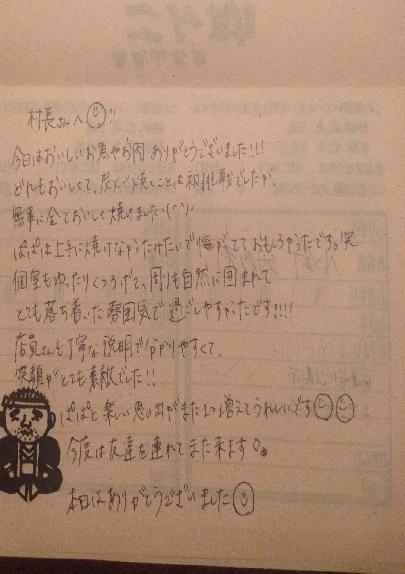 村長さんへ
今日はおいしいお魚やお肉、ありがとうございました!!!
どれもおいしくて、炭火で焼くことは初挑戦でしたが
無事に全ておいしく焼けました(^^)
ぱぱは上手に焼けなかったみたいで悔がってて おもしろかったです。笑
個室もゆったりくつろげて、周りも自然に囲まれて
とても落ち着いた雰囲気で過ごしやすかったです!!!!
店員さんも丁寧な説明で分かりやすくて、
笑顔がとても素敵でした!!
ぱぱと楽しい思い出がまた1つ増えてうれしいです
今度は友達を連れてまた来ます
本日はありがとうございました